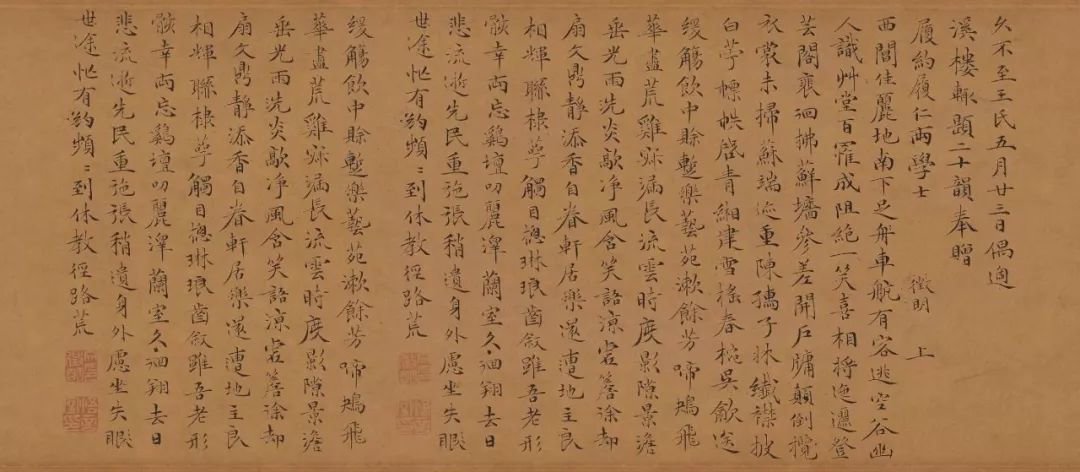 久不至王氏五月廿三日偶過
溪樓輒題二十韻奉贈
履約履仁兩學士 徵明 上
西閶佳麗地南下足舟車航有客逃空谷幽
人識艸堂百罹成阻絕一笑喜相將迤邐登
芸閣裵洄拂蘚墻參差開戶牖顛倒攬
衣裳未掃蘇端迹重陳孺子牀纖襟披
白苧幖帙啓青緗津雪搖春椀吳歈送
緩觴飲中賒蹔樂藝苑漱餘芳啼鴂飛
華盡荒雞寐漏長流雲時度影隙景澹
垂光雨洗炎歊淨風含笑語涼宕簷涂却
扇文鼎靜添香自眷軒居樂還遭地主良
相輝聯棣萼觸目揔琳琅齒敘雖吾老形
骸幸兩忘鷄壇叨麗澤蘭室久洄翔去日
悲流逝先民重弛張稍遺身外慮坐失眼
世途忙有約頻〻到休教徑路荒
緩觴飲中賒蹔樂藝苑漱餘芳啼鴂飛
華盡荒雞寐漏長流雲時度影隙景澹
垂光雨洗炎歊淨風含笑語涼宕簷涂却
扇文鼎靜添香自眷軒居樂還遭地主良
相輝聯棣萼觸目揔琳琅齒敘雖吾老形
骸幸兩忘鷄壇叨麗澤蘭室久洄翔去日
悲流逝先民重弛張稍遺身外慮坐失眼
世途忙有約頻〻到休教徑路荒